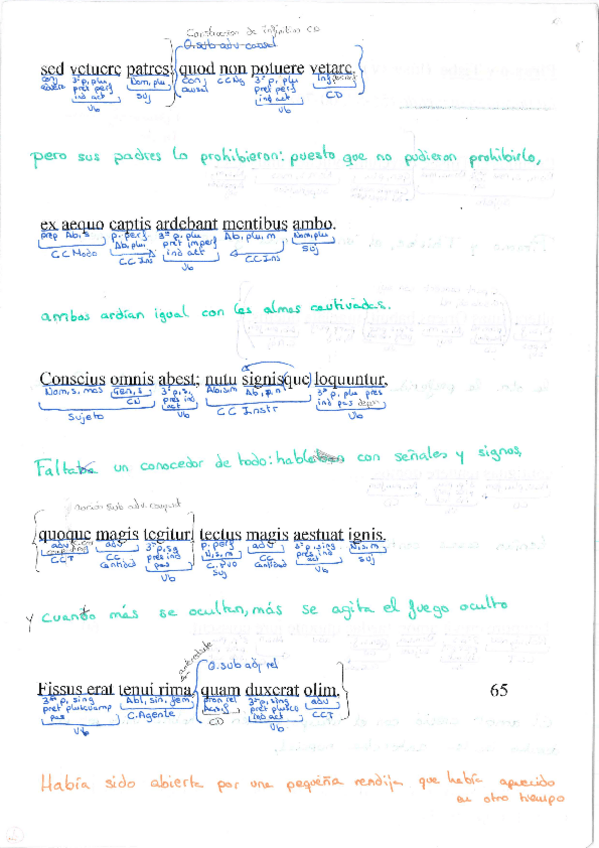 Construccion de infinitivo CD
O.sub adv causal
sed vetuere patres: quod non potuere vetare,
3ª p, plu, Nom, plu
pret perf
ind act
Suj
Vb
con causal
CCNg
3ª p, plu
pret perf
ind act
Vb
CD
pero sus padres lo prohibieron: puesto que no pudieron prohibirlo,
ex aequo captis ardebant mentibus ambo.
prep Ab, s p. perf 3ª p, plu Ab, plu, m Nom, plu
Ab, plu, pret imperf
ind act
C.C Modo C.C Ins Vb C.C Ins Suj
ambos ardían igual con las almas cautivadas.
Conscius omnis abest; nutu signisque loquuntur,
Nom, s, mas Gen, s 3ª p, s, Ab, sm Ab, p, n 3ª p, plu pres
CN pres ind act ind pas
Sujeto Vb CC Instr Vb
Falta un conocedor de todo: hablan con señales y signos,
quoque magis tegitur, tectus magis aestuat ignis.
adv 3ª p, sg p. perf adv 3ª p, sing N, s, m
CC pres ind N, s, m CC pres ind Suj
CCT Cantidad pas Cantidad act
Vb Suj Vb
y cuanto más se ocultan, más se agita el fuego oculto
antecedente
O.sub adj rel
Fissus erat tenui rima, quam duxerat olim, 65
3ª p, sing Abl, sin, fem pron rel 3ª p, sing adv
pret pluscuamp Acus, sf pret plusca CCT
pas C.Agente CD ind act
Vb Vb
Había sido abierta por una pequeña rendija que había aparecido
en otro tiempo